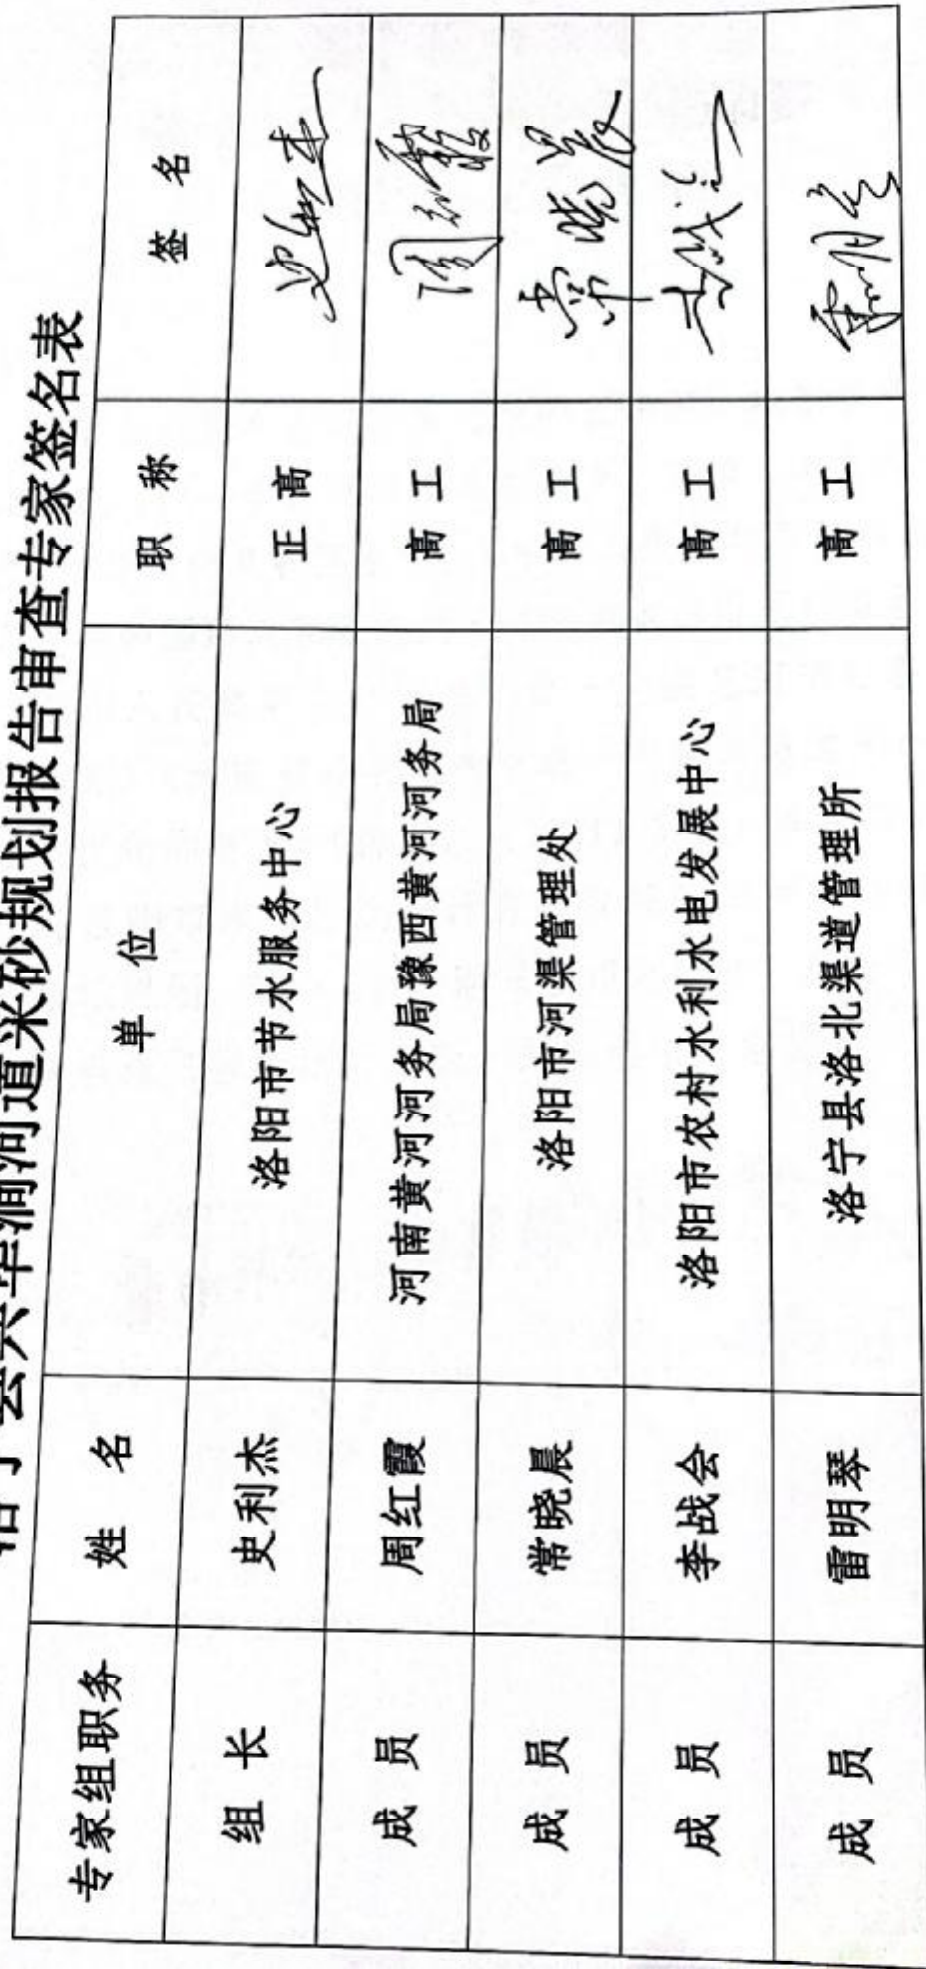 洛宁县兴华涧河道采砂规划报告审查专家签名表
专家组职务 姓名 单位 职称 签名
组长 史利杰 洛阳市节水服务中心 正高 史利杰
成员 周红霞 河南黄河河务局豫西黄河河务局 高工 周红霞
成员 常晓晨 洛阳市河渠管理处 高工 常晓晨
成员 李战会 洛阳市农村水利水电发展中心 高工
成员 雷明琴 洛宁县洛北渠道管理所 高工